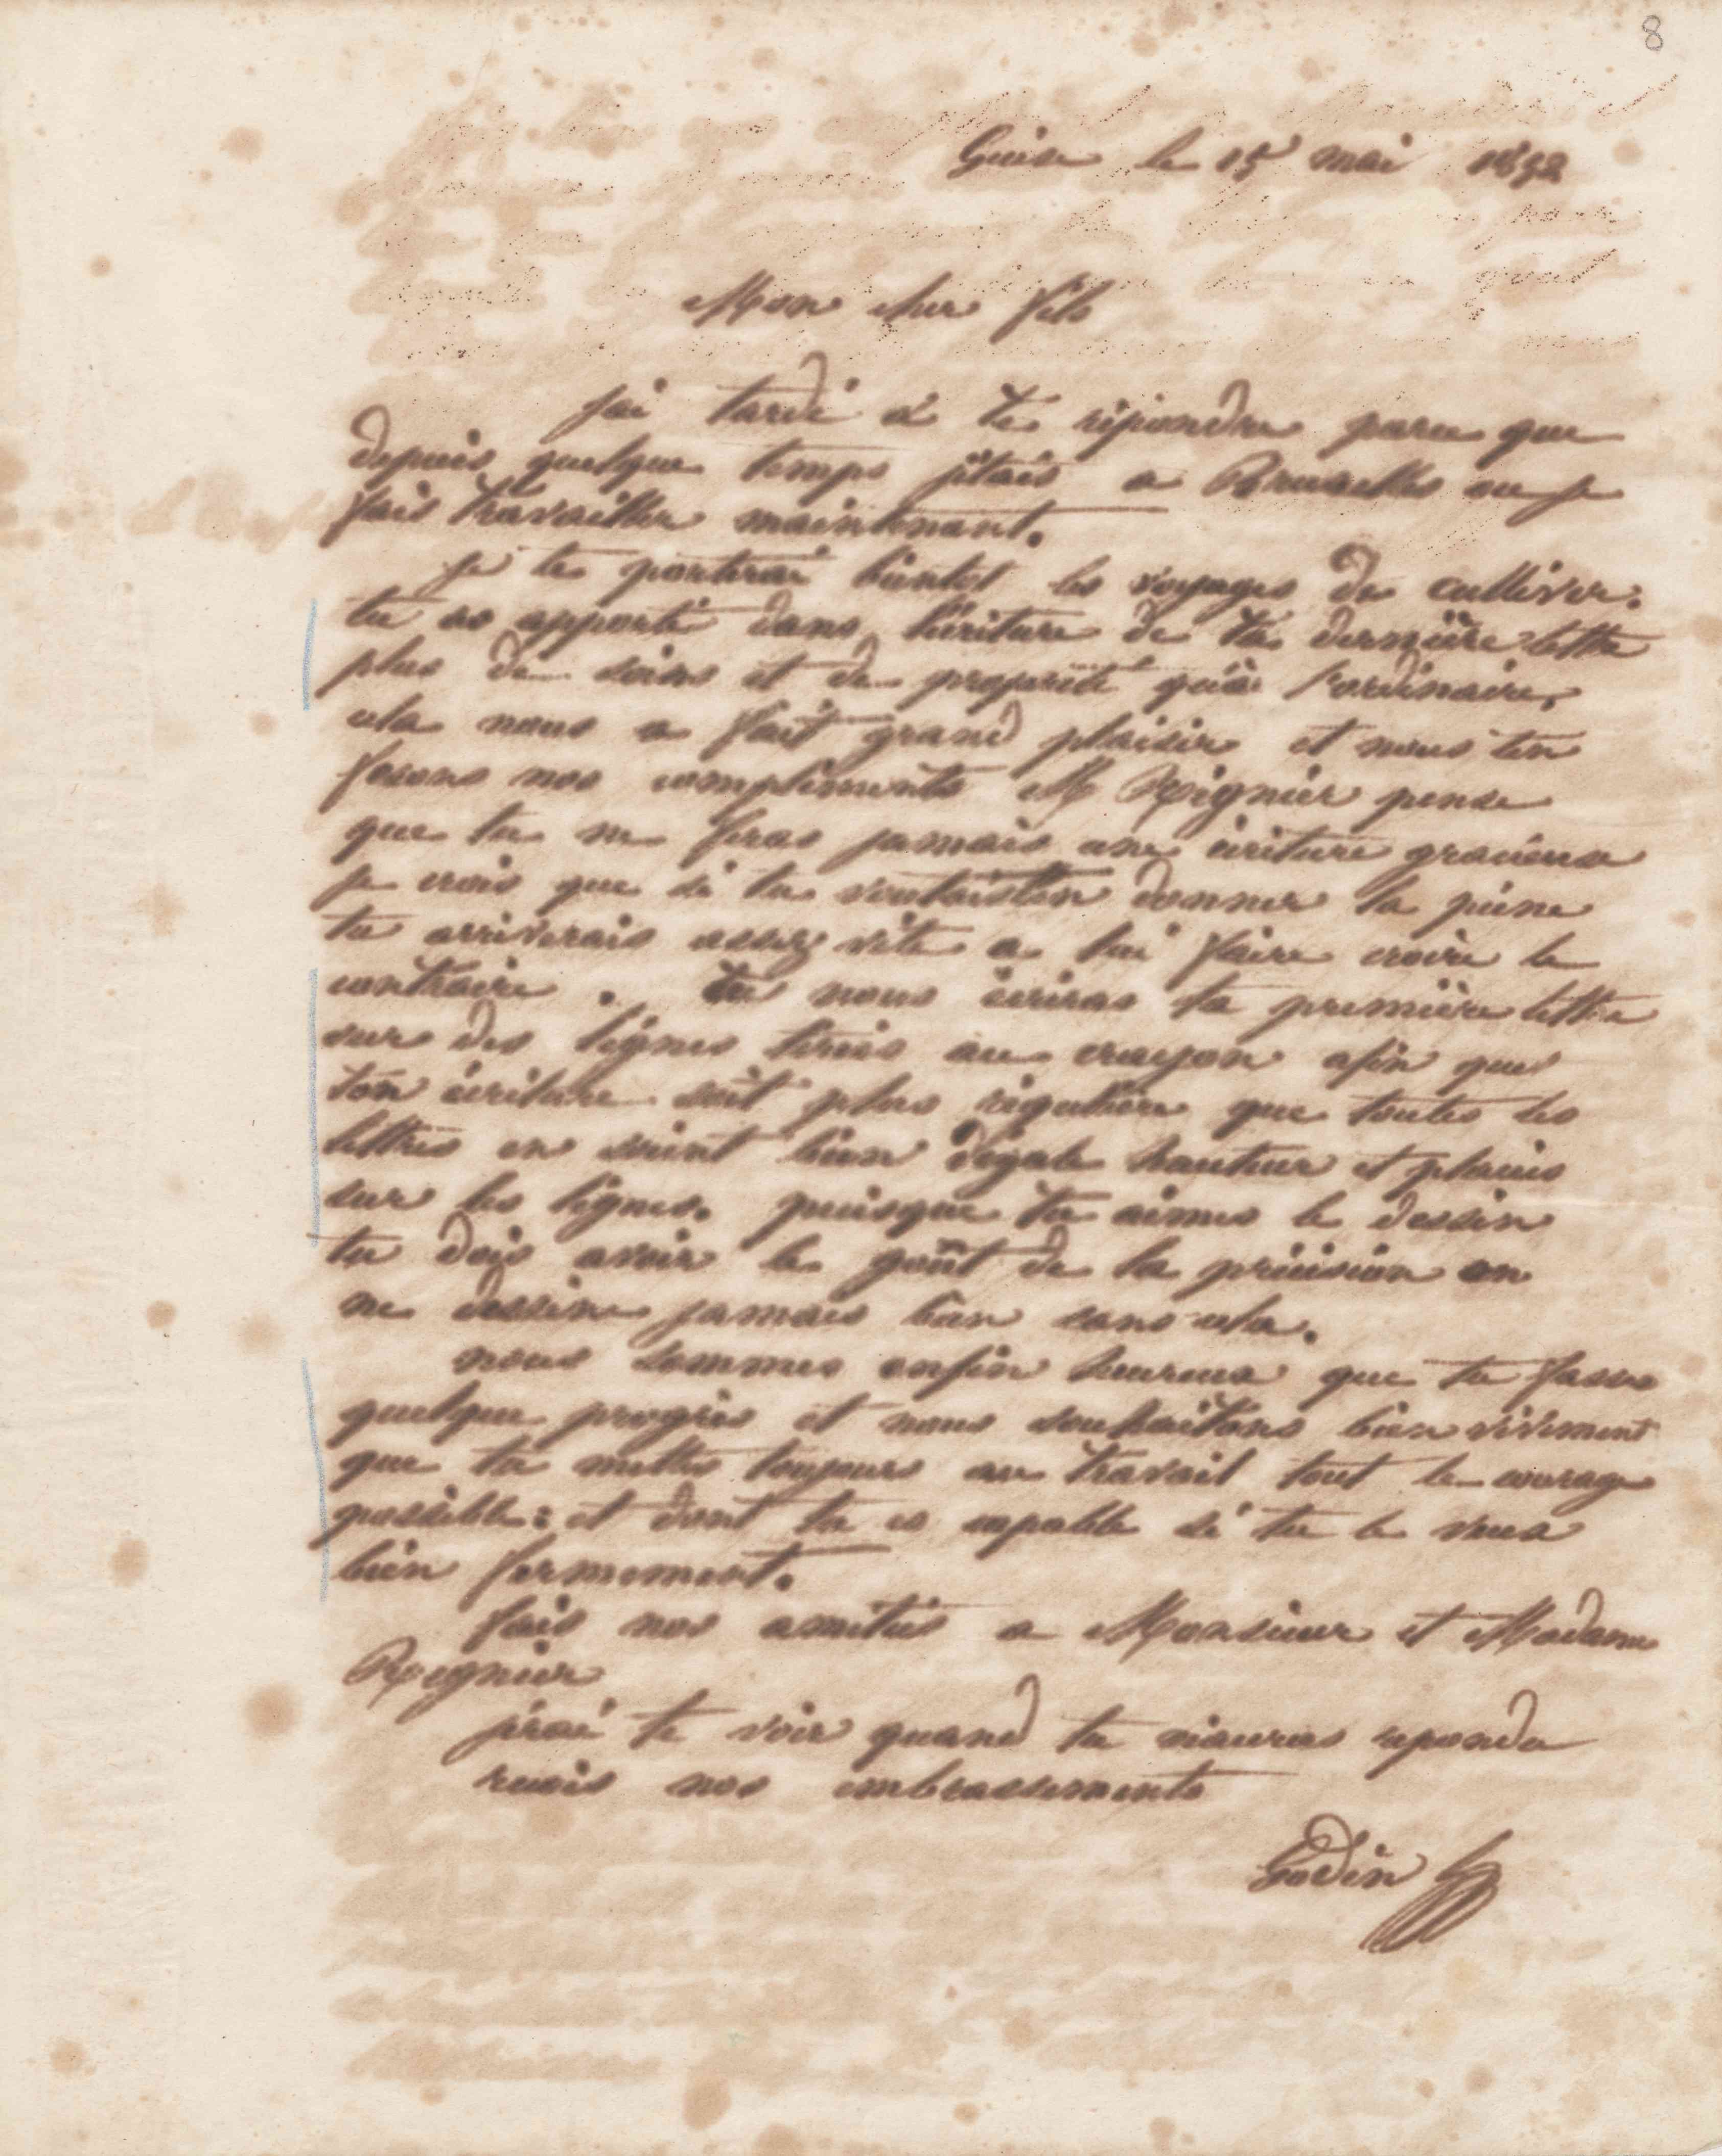 8
Guise le 15 mai 1852
Mon cher fils
j'ai tardé à te répondre parce que
depuis quelque temps j'étais a Bruxelles ou je
fais travailler maintenant.
je te porterai bientot les voyages de culliver.
tu as apporté dans l'écriture de ta dernière lettre
plus de soins et de propreté qu'à l'ordinaire,
cela nous a fait grand plaisir et nous t'en
fesons nos compliments M Reignier pense
que tu ne feras jamais une écriture gracieuse
je crois que si tu voulais t'en donner la peine
tu arriverais assez vite a lui faire croire le
contraire. tu nous écriras ta première lettre
sur des lignes tirées au crayon afin que
ton écriture soit plus régulière que toutes les
lettres en soient bien d'égale hauteur et placées
sur les lignes. puisque tu aimes le dessin
tu dois avoir le goût de la précision on
ne dessine jamais bien sans cela.
nous sommes enfin heureux que tu fasses
quelque progrès et nous souhaitons bien vivement
que tu mettes toujours au travail tout le courage
possible: et dont tu es capable si tu le veux
bien fermement.
fais nos amitiés a Monsieur et Madame
Reignier
j'irai te voir quand tu m'auras repondu
reçois nos embrassements
Godin